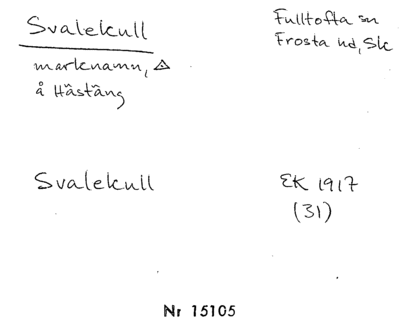 Svalekull
Fulltofta sn
Frosta hd, Sk
marknamn, △
å Hästäng
Svalekull
EK 1917
(31)
Nr 15105